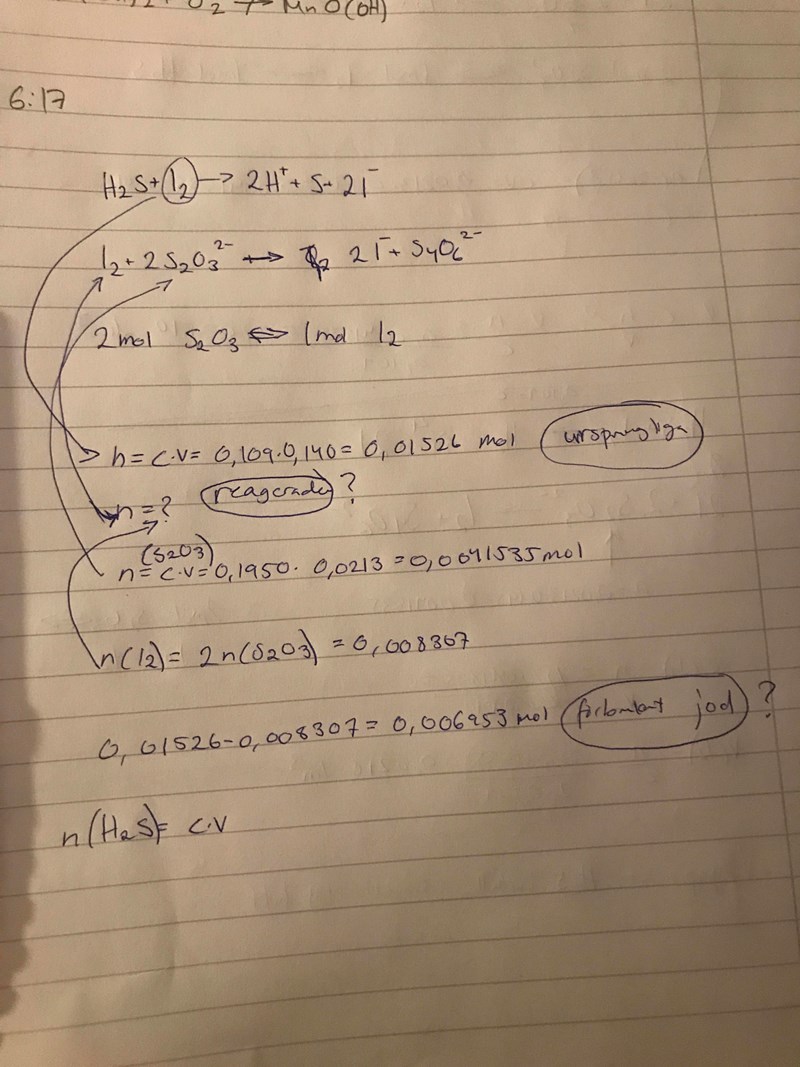 O2 → MnO(OH)
6:17
H2S + I2 → 2H+ + S + 2I-
I2 + 2S2O3^2- ↔ 2I- + S4O6^2-
2 mol S2O3 ⇔ 1 mol I2
n = c·v = 0,109·0,140 = 0,01526 mol ursprungliga
n = ? reagerade ?
(S2O3)
n = c·v = 0,1950 · 0,0213 = 0,0041535 mol
n(I2) = 2n(S2O3) = 0,008307
0,01526 - 0,008307 = 0,006953 mol jod ?
n(H2S) = c·v